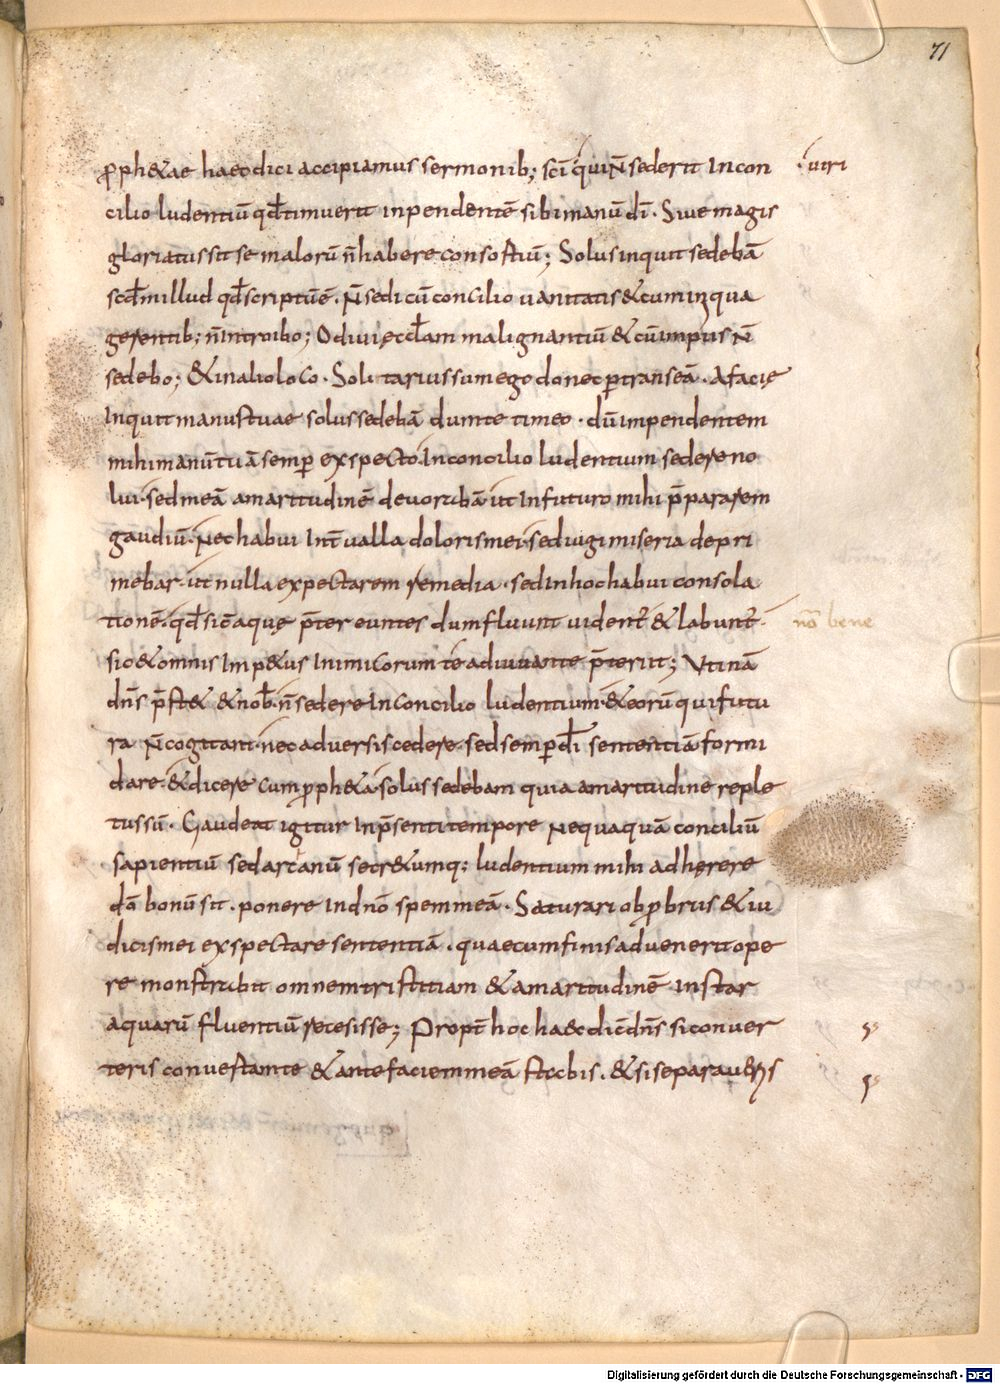 71
ꝓph&ae haec dici accipiamus sermonib; scī qui N̄ sederit In con · uiri
cilio ludentiū qđ timuerit inpendentē sibi manū dī · Siue magis
gloriatus sit se malorū n̄ habere consortiū; Solus inquit sedebā
scdm illud qđ scriptū ē · N̄ sedi cū concilio uanitatis & cum iniqua
gerentib; n̄ introibo; Odiui ęccłam malignantiū & cū impiis N̄
sedebo; & in alio loco · Solitarius sum ego donec ꝑtranseā · A facie
Inquit manus tuae solus sedebā dum te timeo · dū impendentem
mihi manū tuā semꝑ exspecto · In concilio ludentium sedere no
lui · sed meā amaritudinē deuorabā ut In futuro mihi p̄pararem
gaudiū · Nec habui Int̄ualla doloris mei · sed iugi miseria depri
mebar · ut nulla expectarem remedia · sed in hoc habui consola
tionē · qđ sic aquę p̄tereuntes dum fluunt uident̄ & labunt̄ · nō bene
sic & omnis Imp&us Inimicorum te adiuuante p̄terit; Utinā
dn̄s p̄st& & nob̄ · n̄ sedere In concilio ludentium · & eorū qui futu
ra N̄ cogitant · nec aduersis cedere · sed semꝑ dī sententiā formi
dare · & dicere cum ꝓph&a · solus sedebam quia amaritudine reple
tus sū · Gaudeat igitur In p̄senti tempore nequaquā conciliū
sapientiū sed arcanū secr&umq; ludentium mihi adherere
dō bonū sit · ponere In dnō spem meā · Saturari obꝓbriis & iu
dicis mei exspectare sententiā · quae cum finis aduenerit ope
re monstrabit omnem tristitiam & amaritudinē Instar
aquarū fluentiū recesisse; Propt̄ hoc haec dic̄ dn̄s si conuer
teris conuertam te & ante faciem meā stabis · & si separaueris
Digitalisierung gefördert durch die Deutsche Forschungsgemeinschaft - DFG